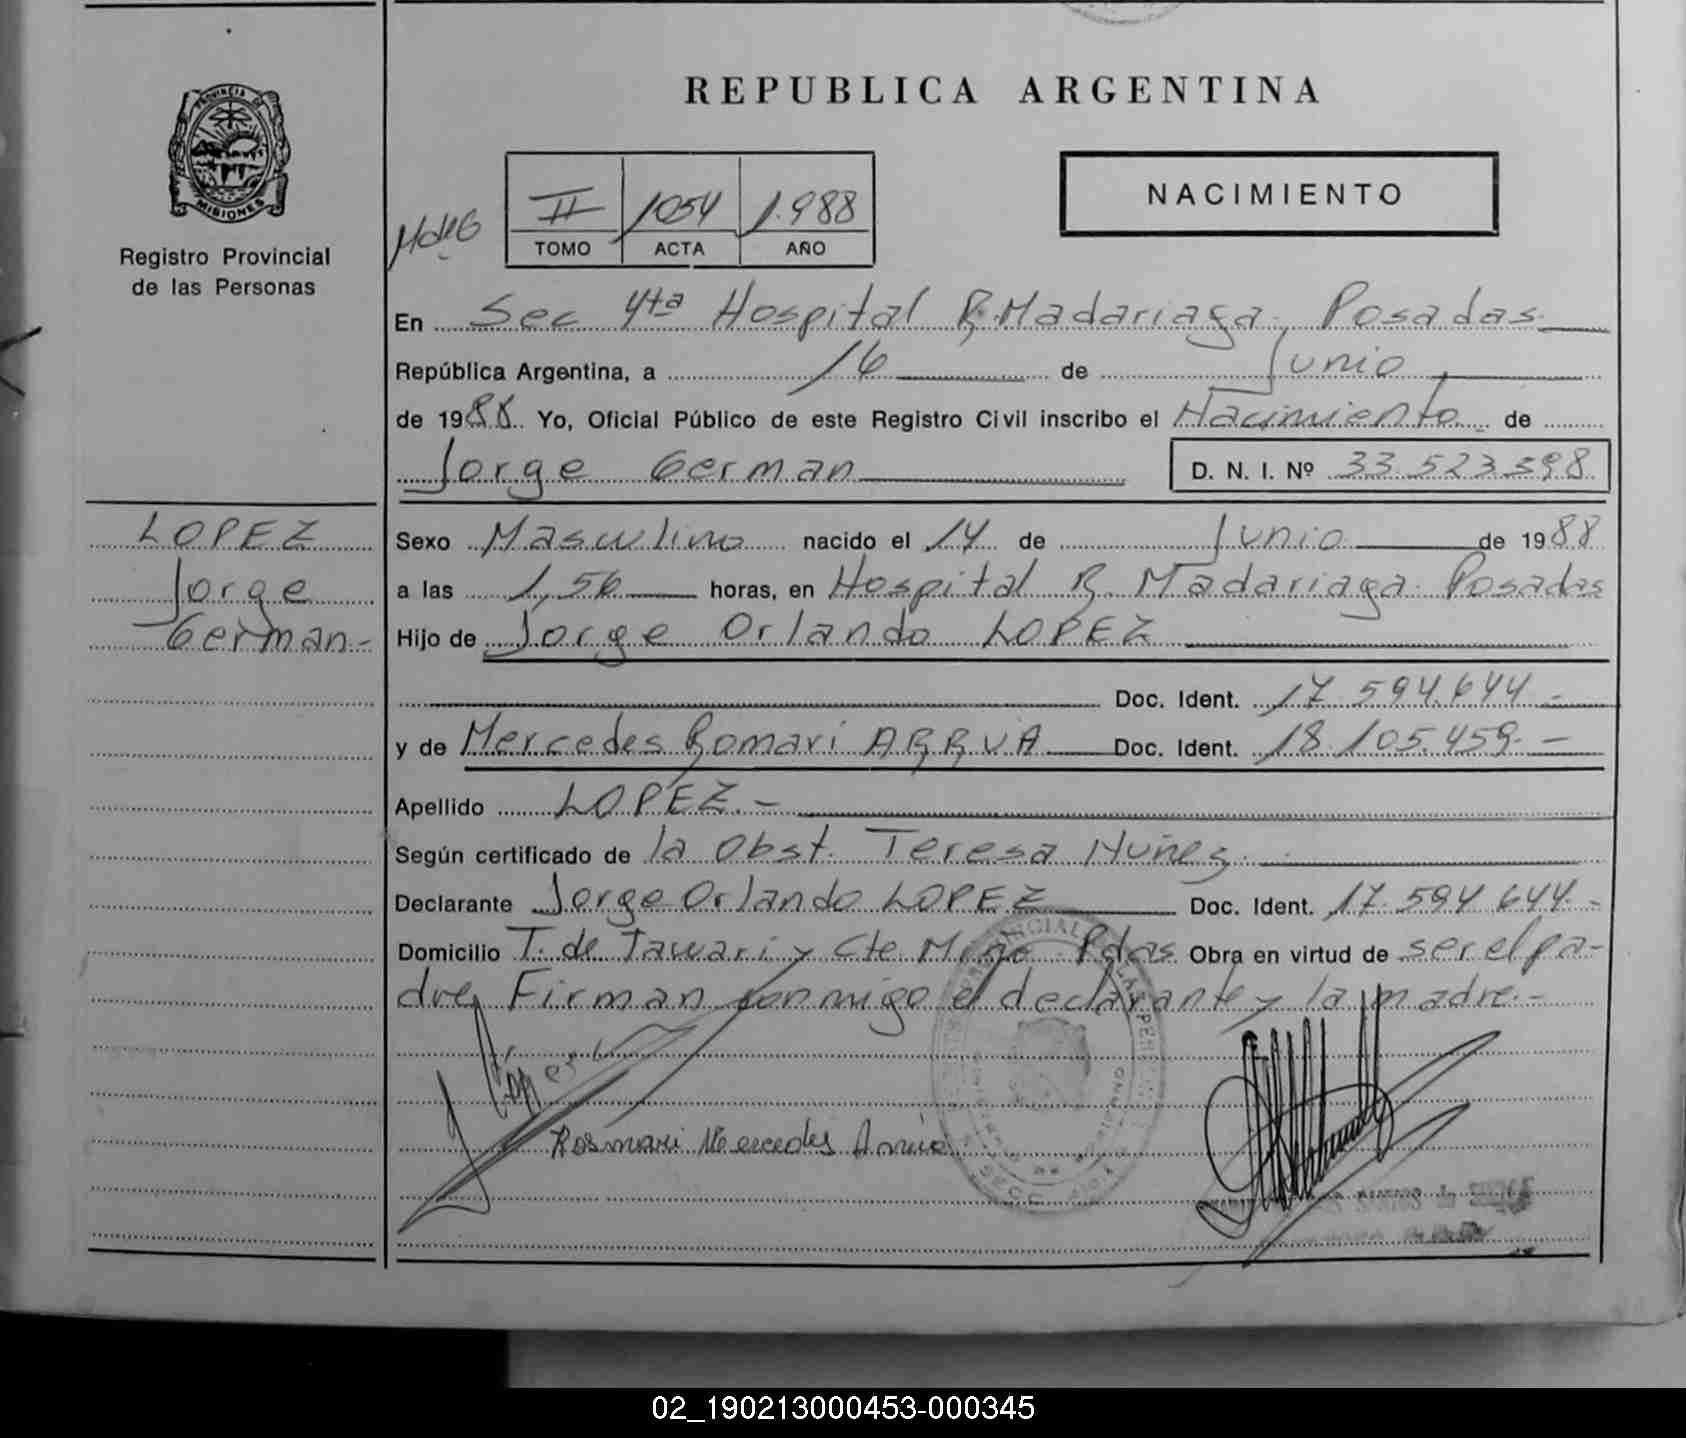 REPUBLICA ARGENTINA
PROVINCIA DE
MISIONES
Registro Provincial
de las Personas
NACIMIENTO
II 1054 1.988
TOMO ACTA AÑO
En Sec 4ta Hospital R. Madariaga, Posadas
República Argentina, a 16 de Junio
de 1988. Yo, Oficial Público de este Registro Civil inscribo el Nacimiento de
Jorge German D. N. I. Nº 33.523.398
LOPEZ
Jorge
German.-
Sexo Masculino nacido el 14 de Junio de 1988
a las 1,56 horas, en Hospital R. Madariaga. Posadas
Hijo de Jorge Orlando LOPEZ
Doc. Ident. 17.594.644.-
y de Mercedes Romari ARRUA Doc. Ident. 18.105.459.-
Apellido LOPEZ.-
Según certificado de la Obst. Teresa Nuñez.
Declarante Jorge Orlando LOPEZ Doc. Ident. 17.594.644.-
Domicilio T. de Tawari y Cte. Pdas Obra en virtud de ser el pa-
dre, Firman conmigo el declarante y la madre.-
Rosmari Mercedes Arrúa
02_190213000453-000345